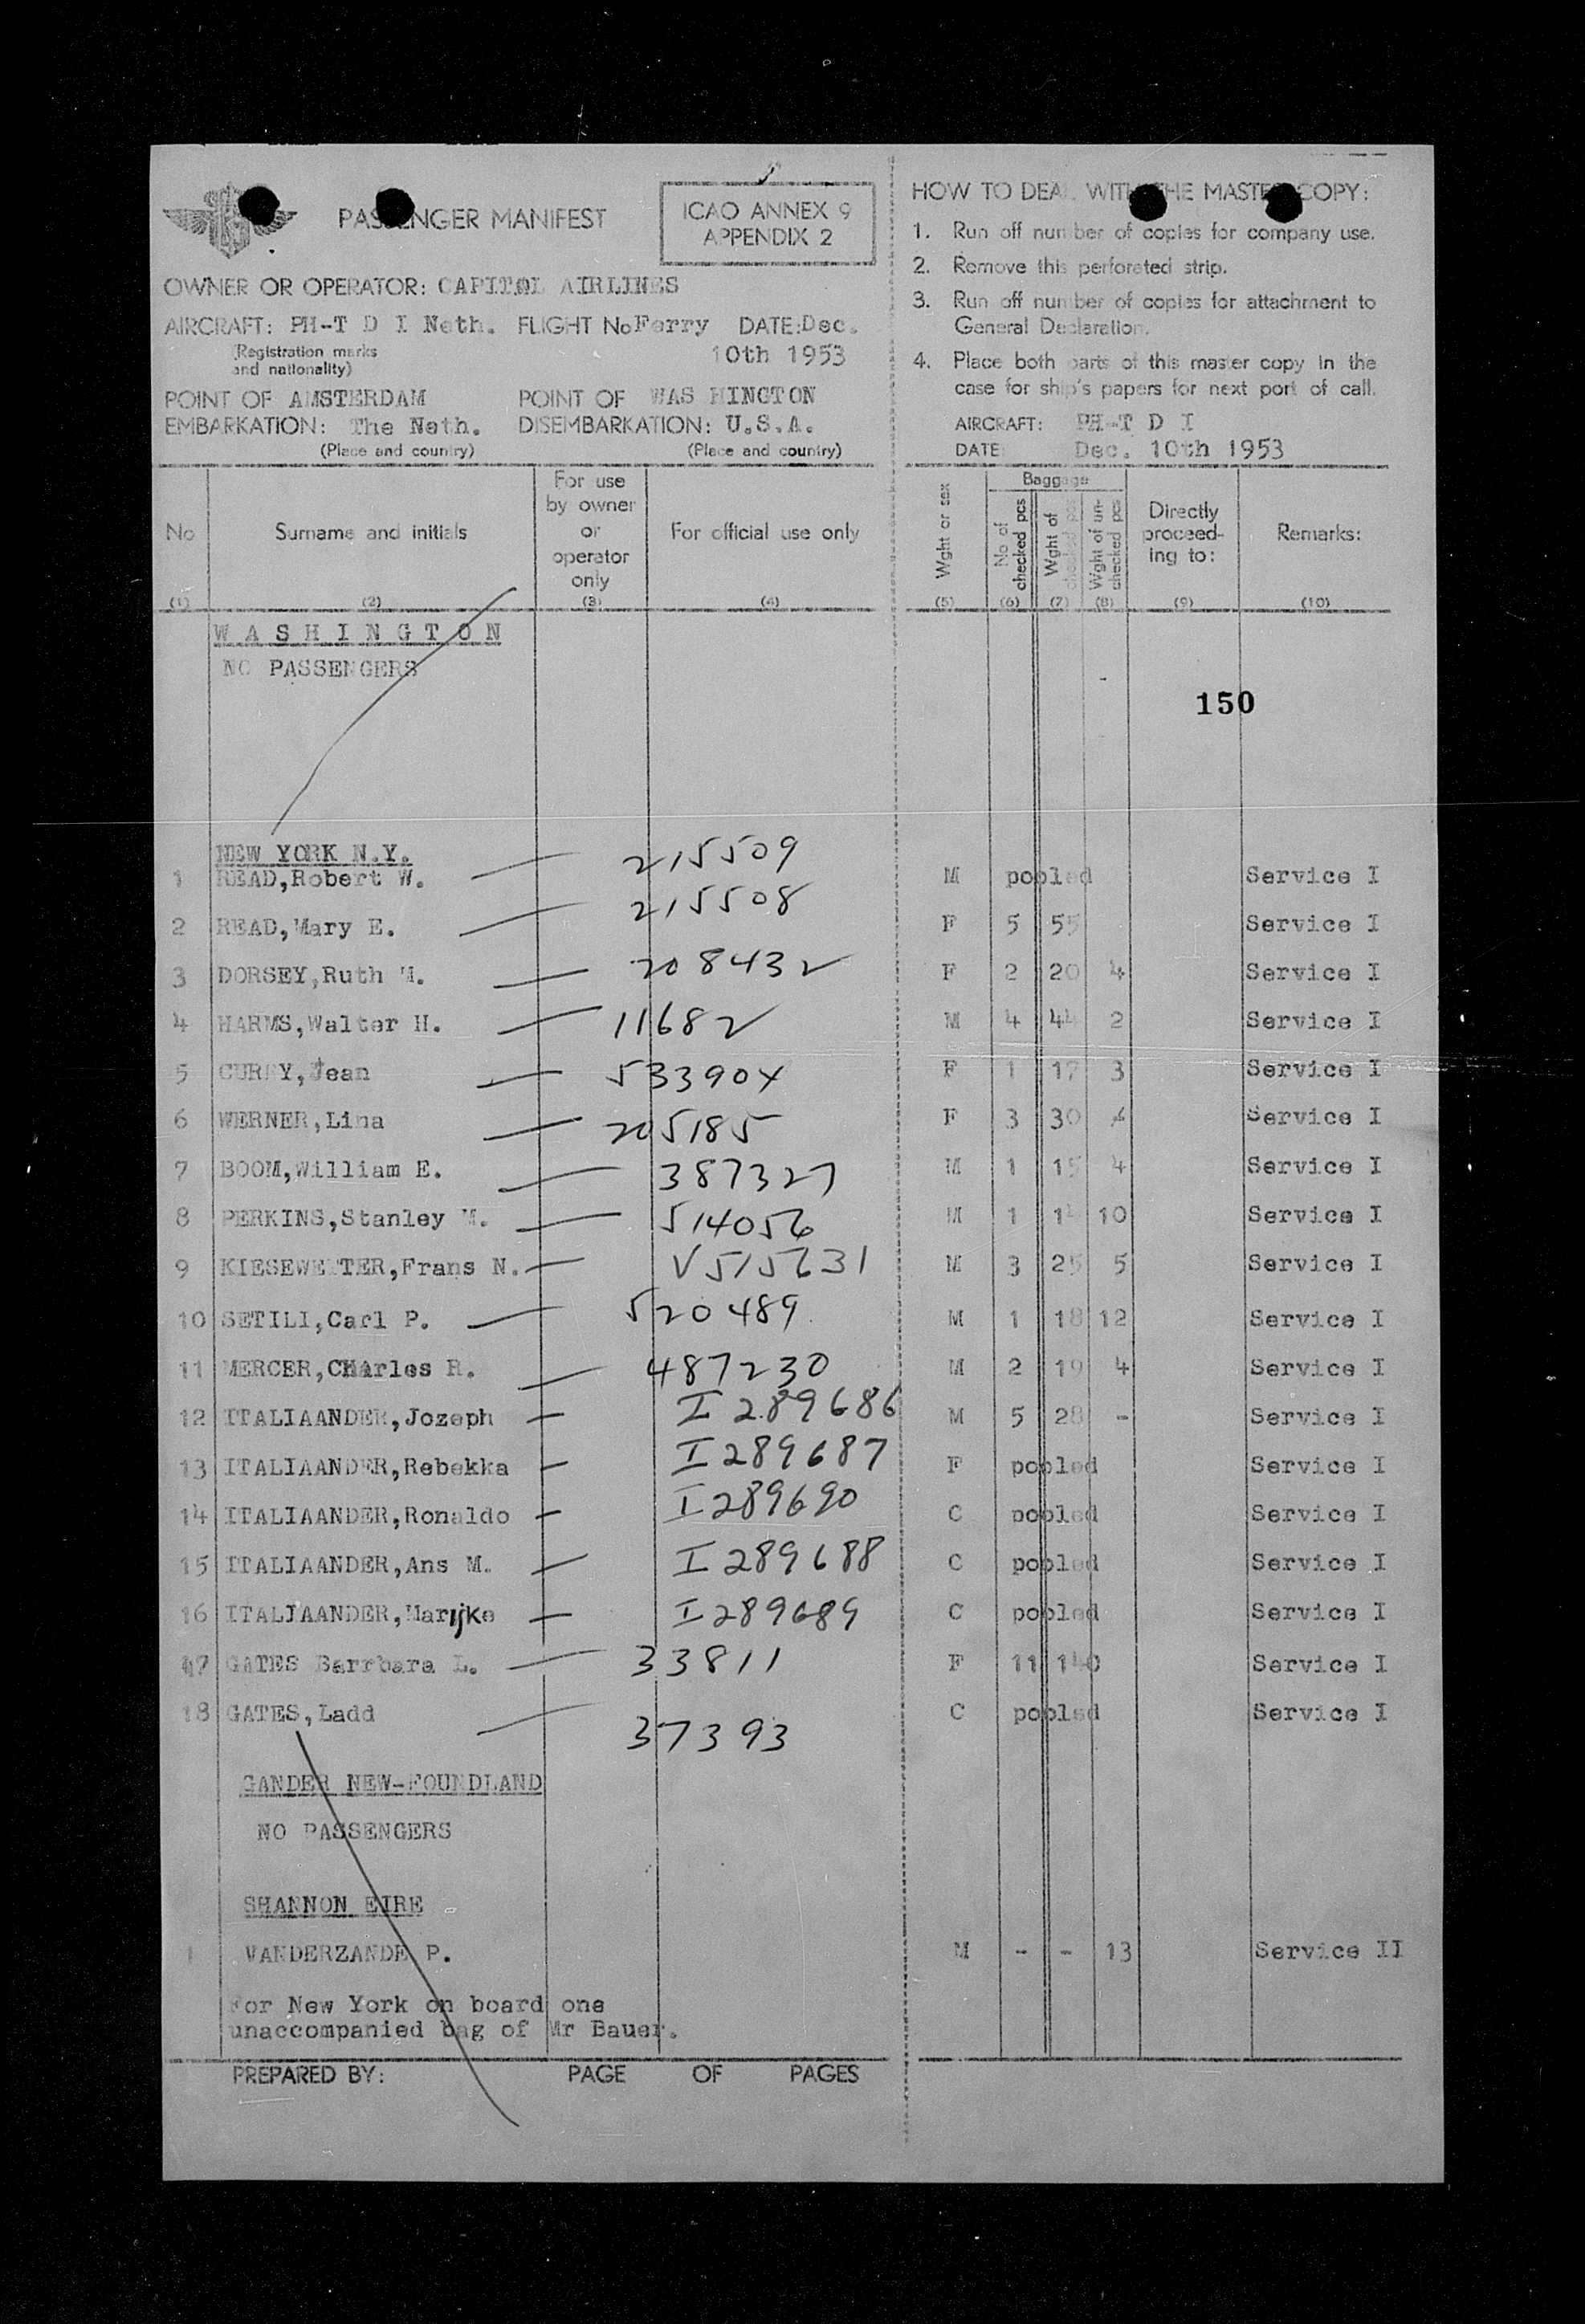 PASSENGER MANIFEST
ICAO ANNEX 9
APPENDIX 2
OWNER OR OPERATOR: CAPITOL AIRLINES
AIRCRAFT: PH-T D I Neth. FLIGHT No Ferry DATE: Dec.
(Registration marks
and nationality)
10th 1953
POINT OF AMSTERDAM POINT OF WAS HINGTON
EMBARKATION: The Neth. DISEMBARKATION: U.S.A.
(Place and country) (Place and country)
HOW TO DEAL WITH THE MASTER COPY:
1. Run off number of copies for company use.
2. Remove this perforated strip.
3. Run off number of copies for attachment to
General Declaration.
4. Place both parts of this master copy in the
case for ship's papers for next port of call.
AIRCRAFT: PH-T D I
DATE: Dec. 10th 1953
No
(1)
Surname and initials
(2)
For use
by owner
or
operator
only
(3)
For official use only
(4)
Wght or sex
(5)
Baggage
No of
checked pcs
(6)
Wght of
checked pcs
(7)
Wght of un-
checked pcs
(8)
Directly
proceed-
ing to:
(9)
Remarks:
(10)
W A S H I N G T O N
NO PASSENGERS
150
NEW YORK N.Y.
1 READ,Robert W. 215509 M pooled Service I
2 READ,Mary E. 215508 F 5 55 Service I
3 DORSEY,Ruth M. 208432 F 2 20 4 Service I
4 HARMS,Walter H. 11682 M 4 44 2 Service I
5 Jean 533904 F 1 17 3 Service I
6 WERNER,Lina 205185 F 3 30 Service I
7 BOOM,William E. 387327 M 1 15 4 Service I
8 PERKINS,Stanley M. 514056 M 1 14 10 Service I
9 KIESEWETTER,Frans N. V515631 M 3 25 5 Service I
10 SETILI,Carl P. 520489 M 1 18 12 Service I
11 MERCER,CHarles R. 487230 M 2 19 4 Service I
12 ITALIAANDER,Jozeph I 289686 M 5 28 - Service I
13 ITALIAANDER,Rebekka I 289687 F pooled Service I
14 ITALIAANDER,Ronaldo I 289690 C pooled Service I
15 ITALIAANDER,Ans M. I 289688 C pooled Service I
16 ITALIAANDER,Marijke I 289689 C pooled Service I
17 GATES Barrbara L. 33811 F 11 140 Service I
18 GATES,Ladd 37393 C pooled Service I
GANDER NEW-FOUNDLAND
NO PASSENGERS
SHANNON EIRE
1 VANDERZANDE P. M - - 13 Service II
For New York on board one
unaccompanied bag of Mr Bauer.
PREPARED BY: PAGE OF PAGES